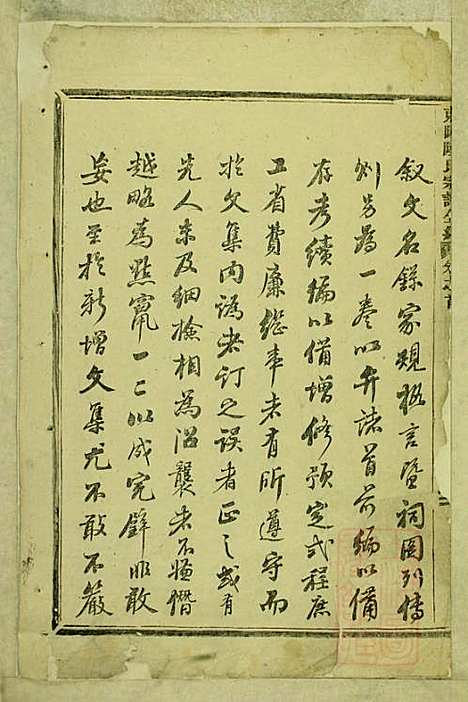 叙文名錄家規格言暨祠圖列傳
則另為一卷以弁諸首前編以備
存考續編以備增修預定式程庶
工省費廉繼事者有所遵守而
於文集內譌者訂之誤者正之或有
先人未及細檢相為沿襲者不嫌僭
越略為點竄一二以成完璧非敢
妄也至於新增文集尤不敢不嚴